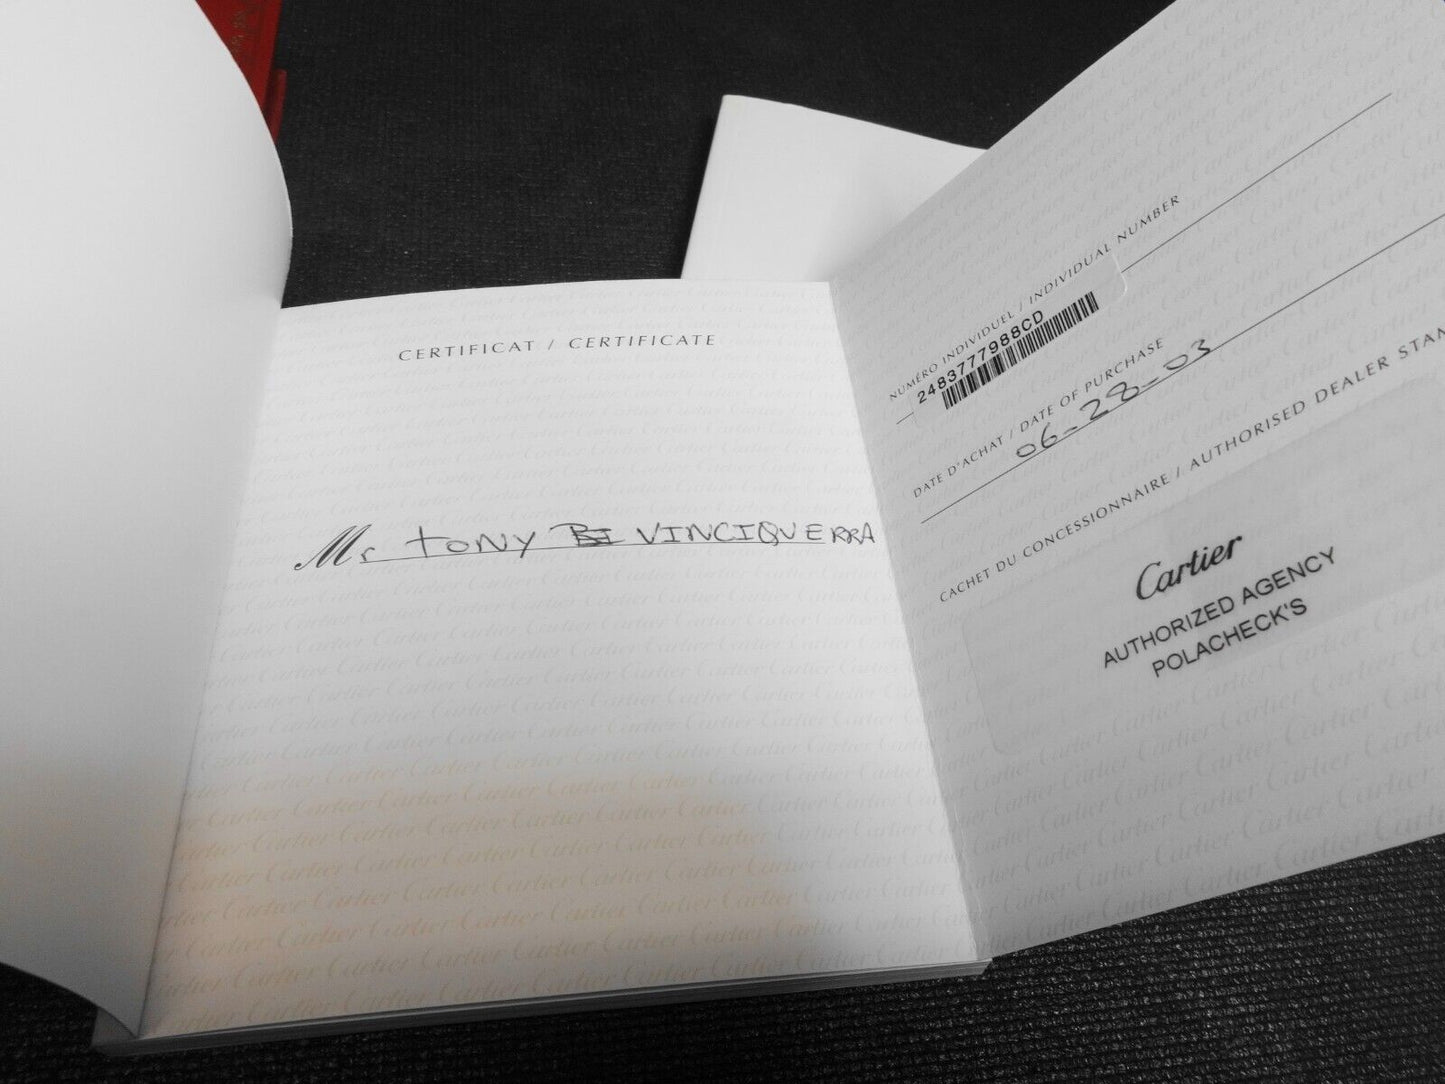 CERTIFICAT / CERTIFICATE
Mr TONY VINCIQUERRA
NUMÉRO INDIVIDUEL / INDIVIDUAL NUMBER
2483777988CD
DATE D'ACHAT / DATE OF PURCHASE
06-28-03
CACHET DU CONCESSIONNAIRE / AUTHORISED DEALER STAM
Cartier
AUTHORIZED AGENCY
POLACHECK'S